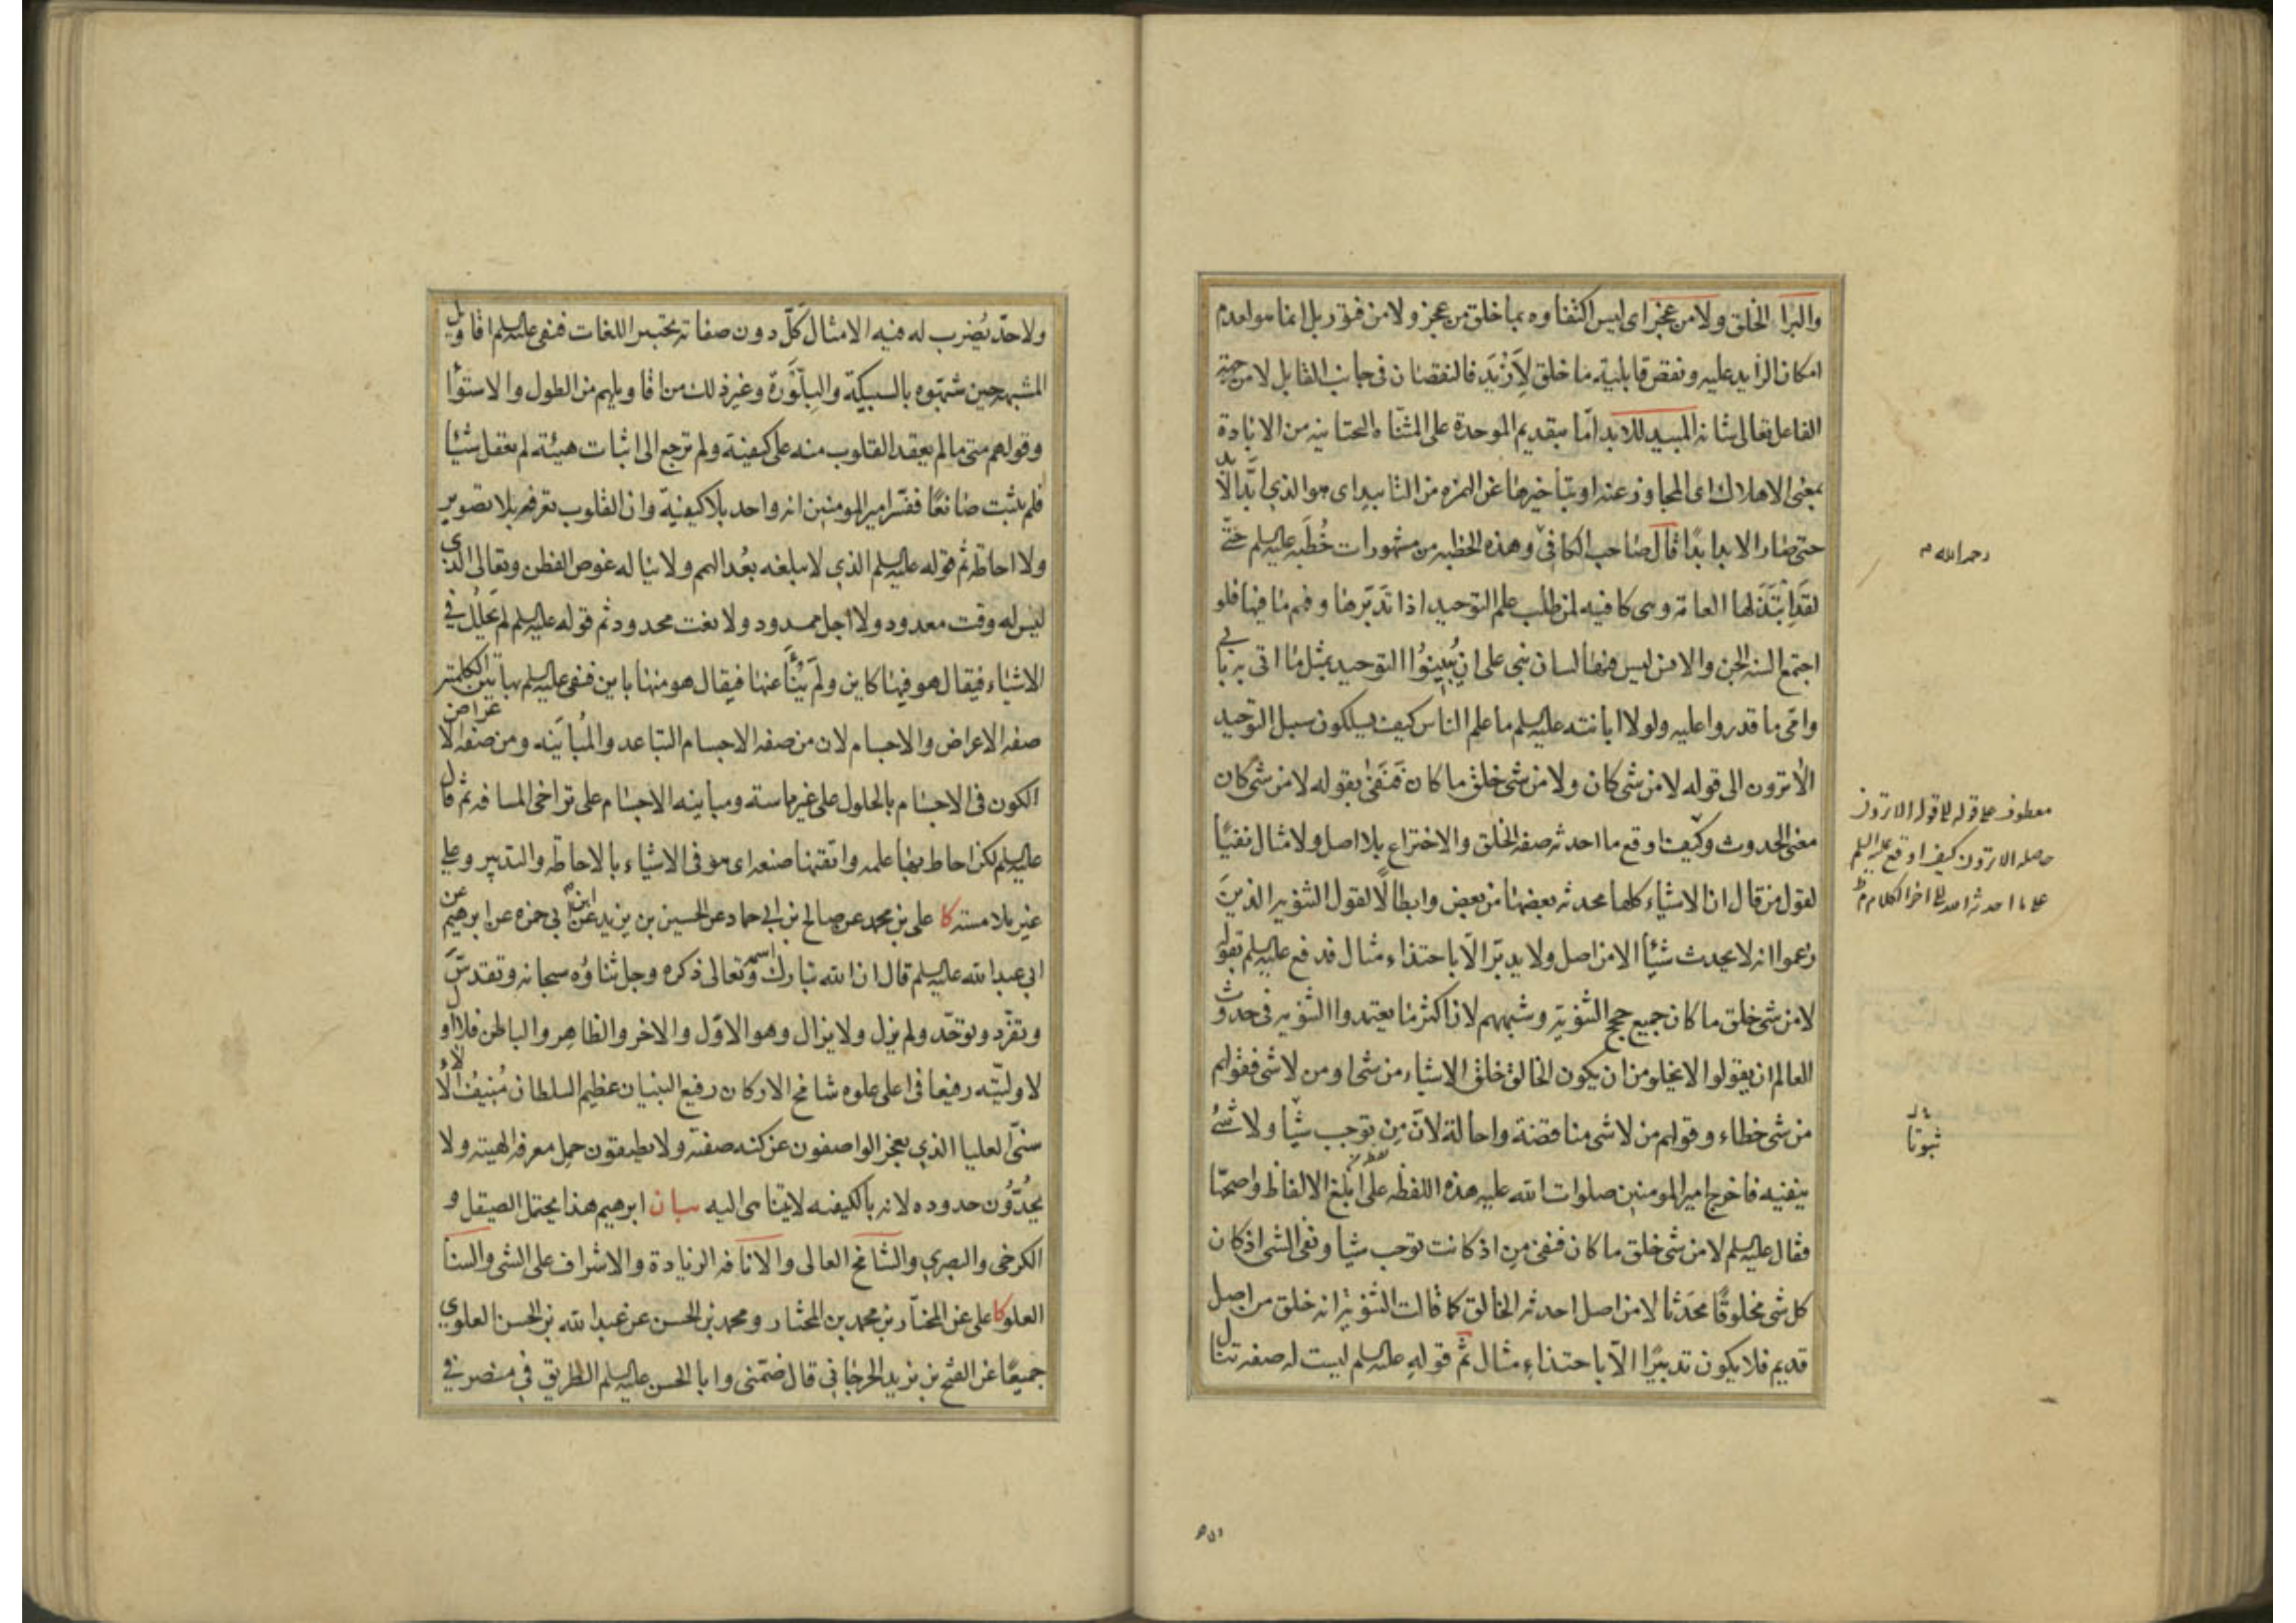 والبرا الخلق ولا من عجز اى ليس اكتفاوه بما خلق من عجز ولا من فتور بل انما هو لعدم
امكان الزايد عليه ونقص قابلية ما خلق لاَزْيَد فالنقصان فى جانب القابل لا من جهة
الفاعل تعالى شانه المبيد للابد اما بتقديم الموحدة على المثناة التحتانيه من الابادة
بمعنى الاهلاك اى المجاوز عنه او بتاخيرها عن الهمزه من التابيد اى هو الذى ابّد الابد
حتى صار الابد ابدًا قال صاحب الكافى وهذه الخطبه من مشهورات خُطَبِه عليه السلم حتّى
لقد ابْتَذَلَها العامة وهى كافيه لمن طلب علم التوحيد اذا تدبّرها وفهم ما فيها فلو
اجتمع السنه الجن والانس ليس فيها لسان نبى على ان يُبيّنوُا التوحيد بمثل ما اتى به بابى
وامى ما قدروا عليه ولولا ابانته عليه السلم ما علم الناس كيف يسلكون سبل التوحيد
الا ترون الى قوله لا من شى كان ولا من شى خلق ما كان فَنَفىٰ بقوله لا من شى كان
معنى الحدوث وكيف اوقع ما احدثه صفه الخلق والاختراع بلا اصل ولا مثال نفيًا
لقول من قال ان الاشياء كلها محدثه بعضها من بعض وابطالًا لقول الثنويه الذينَ
زعموا انه لا يحدث شيًا الا من اصل ولا يدبّر الّا باحتذاء مثال فدفع عليه السلم بقوله
لا من شى خلق ما كان جميع حجج الثنويّه وشبههم لان اكثر ما يعتمدوا الثنويه فى حدوث
العالم ان يقولوا لا يخلو من ان يكون الخالق خلق الاشياء من شى او من لا شى فقولهم
من شى خطاء وقولهم من لا شى مناقضة واحالة لانّ مِن توجب شيًا ولا شىُ
ينفيه فاخرج امير المومنين صلوات الله عليه هذه اللفظه على ابلغ الالفاظ واصحّها
فقال عليه السلم لا من شى خلق ما كان فنفى مِن اذ كانت توجب شيا ونفى الشى اذ كان
كل شى مخلوقًا محدَثا لا من اصل احدثه الخالق كما قالت الثنويه انه خلق من اصل
قديم فلا يكون تدبيرًا الّا باحتذاءِ مثال ثم قوله عليه السلم ليست له صفه تنال
رحمه الله م
معطوف على قوله الى قوله الا ترون
حاصله الا ترون كيف اوقع عليه السلم
على ما احدثه الله الى اخر الكلام م
ثبوتا
ولا حدّ يُضرب له فيه الامثال كلّ دون صفاته تحبير اللغات فنفى عليه السلم اقاويل
المشبهه حين شبّهوه بالسبيكة والبِلّوَرة وغير ذلك من اقاويلهم من الطول والاستوُا
وقولهم متى ما لم يعقد القلوب منه على كيفية ولم ترجع الى اثبات هيئة لم يعقل شيًا
فلم يثبت صانعًا ففسّر امير المومنين انه واحد بلا كيفيّة وان القلوب تعرفه بلا تصوير
ولا احاطه ثم قوله عليه السلم الذى لا يبلغه بعُد الهمم ولا يناله غوص الفطن وتعالى الذى
ليس له وقت معدود ولا اجل ممدود ولا نعت محدود ثم قوله عليه السلم لم يَحْلُل فى
الاشياء فيقال هو فيها كاين ولَم يُناَ عنها فيقال هو منها باين فنفى عليه السلم بهاتين الكلمتين
صفه الاعراض والاجسام لان من صفه الاجسام التباعد والمُبايَنه ومن صفه الاعراض
الكون فى الاجسام بالحلول على غير ماسة ومباينه الاجسام على تراخى المسافه ثم قال
عليه السلم لكن احاط بها علمه واتقنها صنعه اى هو فى الاشياء بالاحاطه والتدبير وعلى
غير ملامسته كا على بن محمد عن صالح بن ابى حماد عن الحسين بن يزيد عن ابن ابى حمزه عن ابرهيم عن
ابى عبد الله عليه السلم قال ان الله تبارك اسمه وتعالى ذكره وجل ثناوُه سبحانه وتقدسَّ
وتفرّد وتوحّد ولم يزل ولا يزال وهو الاوّل والاخر والظاهِر والباطن فلا اول
لاوليّته رفيعا فى اعلى علوه شامخ الاركان رفيع البنيان عظيم السلطان مُنيف الالاء
سنىّ العليا الذى يعجز الواصفون عن كنه صفته ولا يطيقون حمل معرفه الهيته ولا
يحُدُّوُن حدوده لانه بالكيفيه لا يتناهى اليه بيان ابرهيم هذا يحتمل الصيقل و
الكرخى والبصرى والشامخ العالى والانافه الزيادة والاشراف على الشى والسنا
العلو كا على عن المختار بن محمد بن المختار ومحمد بن الحسن عن عبد الله بن الحسن العلوى
جميعًا عن الفتح بن يزيد الجرجانى قال ضمّنى وابا الحسن عليه السلم الطريق فى منصرفى